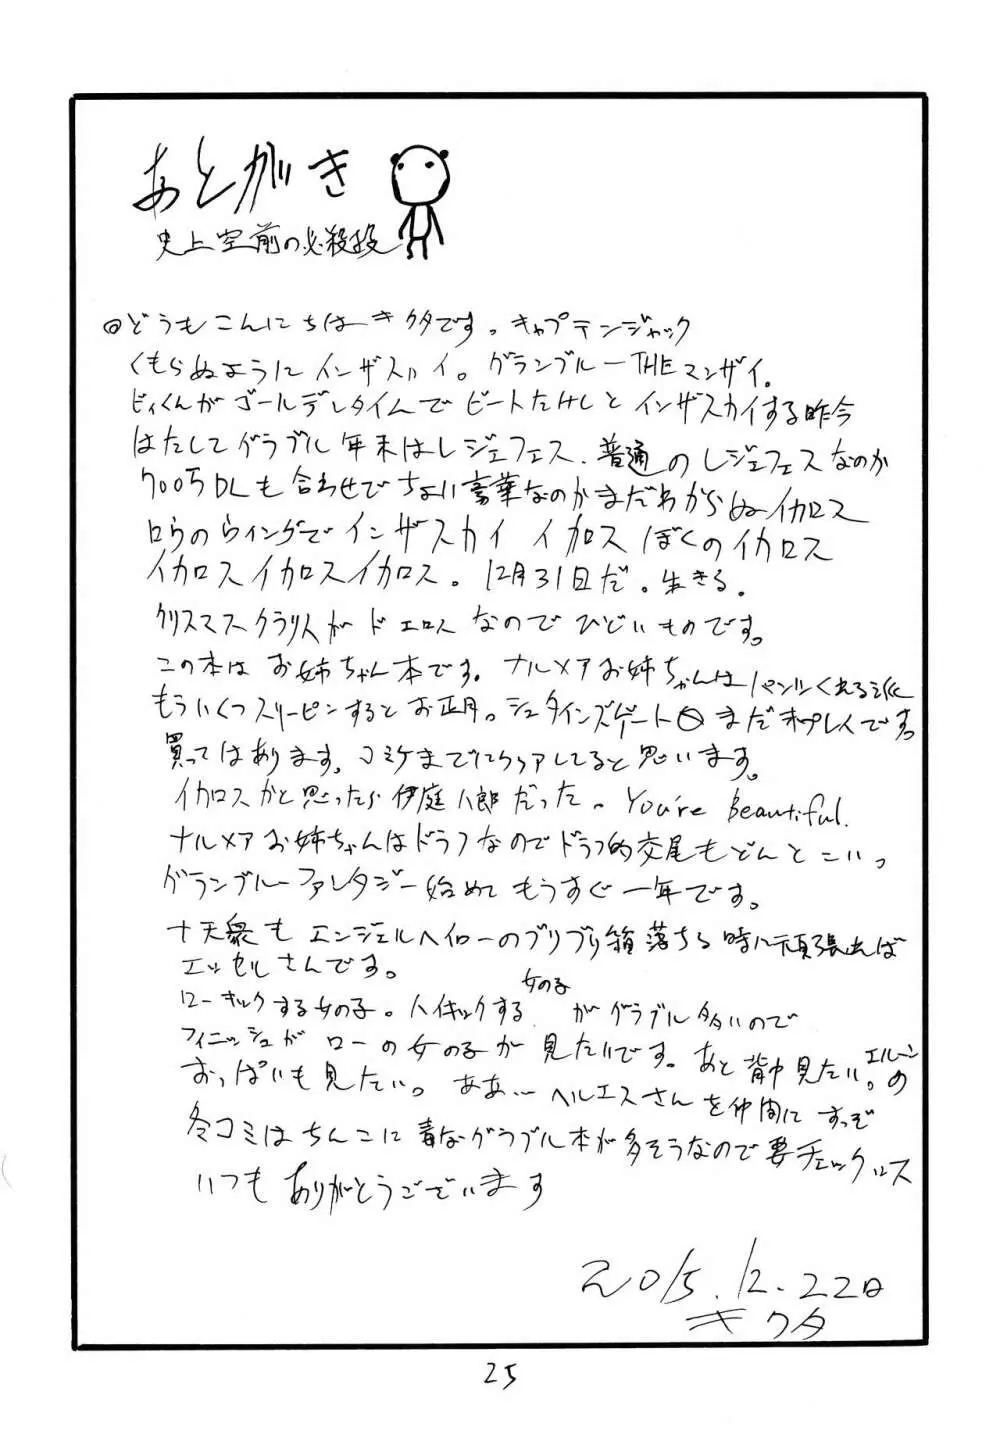 あとがき
史上空前の必殺技
どうもこんにちはキクタです。キャプテンジャック
くもらぬようにインザスハイ。グランブルーTHEマンザイ。
ビィくんがゴールデンタイムでビートたけしとインザスカイする昨今
はたしてグラブル年末はレジェフェス、普通のレジェフェスなのか
700万DLも合わせでちょい豪華なのかまだわからぬイカロス
ロウのウィングでインザスカイ イカロス ぼくのイカロス
イカロスイカロスイカロス。12月31日だ。生きる。
クリスマスクラリスがドエロスなのでひどいものです。
この本はお姉ちゃん本です。ナルメアお姉ちゃんはパンツくれる派
もういくつスリーピンするとお正月。シュタインズゲート0まだ未プレイです。
買ってはあります。コミケまでにクリアしてると思います。
イカロスかと思ったら伊庭八郎だった。You're Beautiful.
ナルメアお姉ちゃんはドラフなのでドラフ的交尾もどんとこいっ
グランブルーファンタジー始めてもうすぐ一年です。
十天衆もエンジェルヘイローのブリブリ箱落ちる時に頑張れば
エッセルさんです。
ローキックする女の子。ハイキックする女の子がグラブル多いので
フィニッシュがローの女の子が見たいです。あと背中見たい。エルーンの
おっぱいも見たい。ああ…ヘルエスさんを仲間にすっぞ
冬コミはちんこに毒なグラブル本が多そうなので要チェックロス
いつもありがとうございます
2015.12.22日
キクタ
25